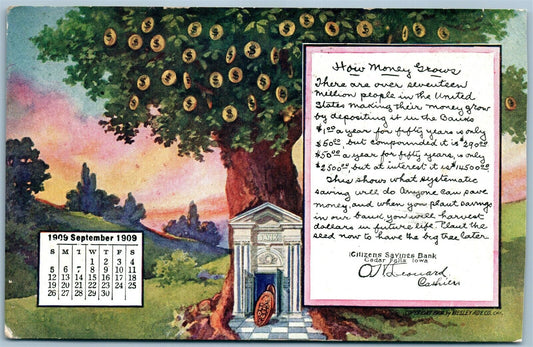 How Money Grows
There are over seventeen
million people in the United
States making their money grow
by depositing it in the Banks
$1.00 a year for fifty years is only
$50.00, but compounded it is $290.00
$50.00 a year for fifty years, is only
$2500, but at interest it is $14500.00
This shows what systematic
saving will do Anyone can save
money, and when you plant savings
in our bank you will harvest
dollars in future life. Plant the
seed now to have the big tree later
Citizens Savings Bank
Cedar Falls Iowa
Leonard
Cashier
BANK
1909 September 1909
S M T W T F S
1 2 3 4
5 6 7 8 9 10 11
12 13 14 15 16 17 18
19 20 21 22 23 24 25
26 27 28 29 30